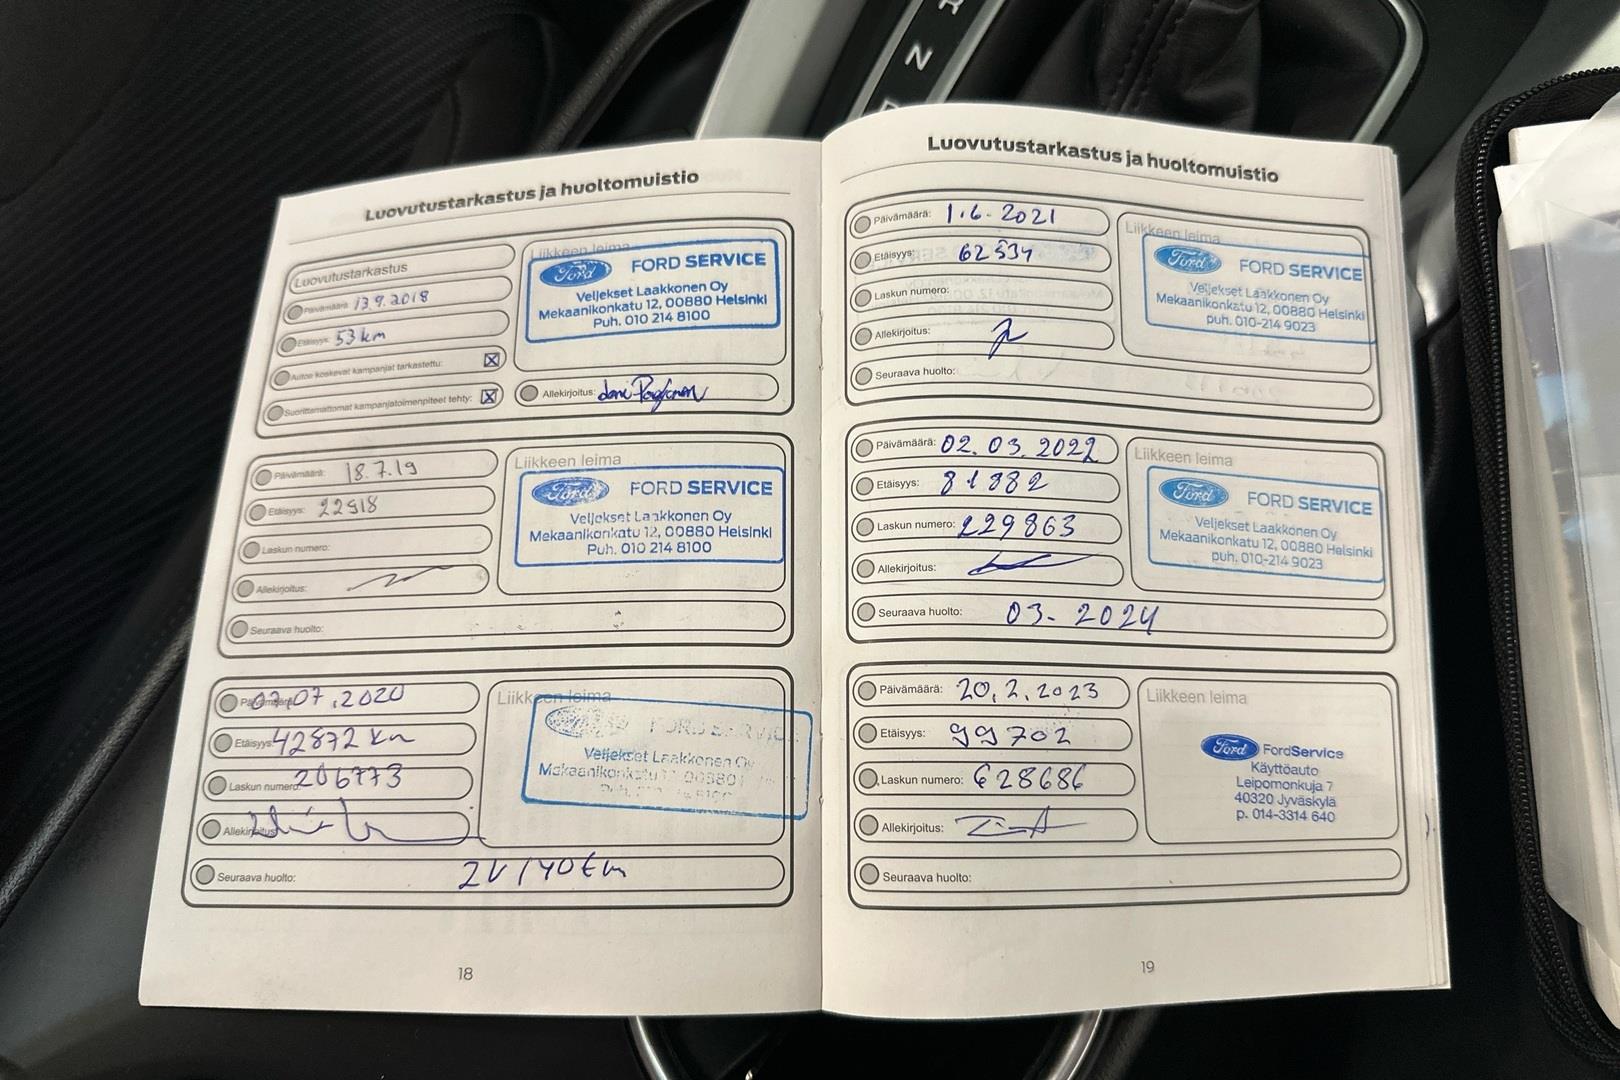 N
Luovutustarkastus ja huoltomuistio
Luovutustarkastus
Päivämäärä: 13.9.2018
Etäisyys: 53 km
Autoa koskevat kampanjat tarkastettu: X
Suorittamattomat kampanjatoimenpiteet tehty: X
Liikkeen leima
Ford FORD SERVICE
Veljekset Laakkonen Oy
Mekaanikonkatu 12, 00880 Helsinki
Puh. 010 214 8100
Allekirjoitus:
Päivämäärä: 18.7.19
Etäisyys: 22918
Laskun numero:
Allekirjoitus:
Seuraava huolto:
Liikkeen leima
Ford FORD SERVICE
Veljekset Laakkonen Oy
Mekaanikonkatu 12, 00880 Helsinki
Puh. 010 214 8100
Päivämäärä: 07.07.2020
Etäisyys: 42872 km
Laskun numero: 206773
Allekirjoitus:
Seuraava huolto: 2V/40tkm
Liikkeen leima
FORD SERVICE
Veljekset Laakkonen Oy
Mekaanikonkatu 12, 00880
Puh. 010 214 8100
18
Luovutustarkastus ja huoltomuistio
Päivämäärä: 1.6.2021
Etäisyys: 62534
Laskun numero:
Allekirjoitus:
Seuraava huolto:
Liikkeen leima
Ford FORD SERVICE
Veljekset Laakkonen Oy
Mekaanikonkatu 12, 00880 Helsinki
puh. 010-214 9023
Päivämäärä: 02.03.2022
Etäisyys: 81882
Laskun numero: 229863
Allekirjoitus:
Seuraava huolto: 03-2024
Liikkeen leima
Ford FORD SERVICE
Veljekset Laakkonen Oy
Mekaanikonkatu 12, 00880 Helsinki
puh. 010-214 9023
Päivämäärä: 20.2.2023
Etäisyys: 99702
Laskun numero: 628686
Allekirjoitus:
Seuraava huolto:
Liikkeen leima
Ford FordService
Käyttöauto
Leipomonkuja 7
40320 Jyväskylä
p. 014-3314 640
19